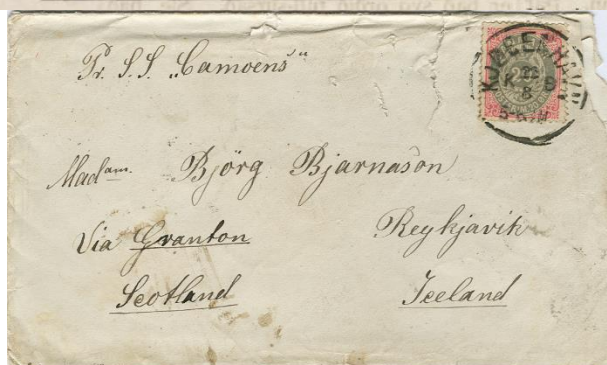 Pr. S.S. „Camoens"
KJØBENHAVN
K. B
22
8
5-6
Madam. Björg Bjarnason
Via Granton Reykjavik
Scotland Iceland